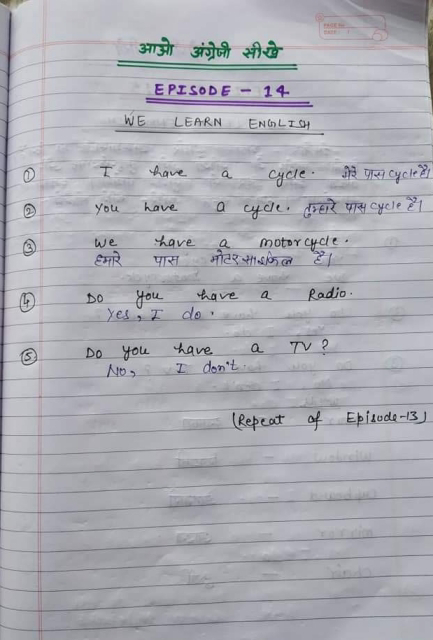 आओ अंग्रेजी सीखे
EPISODE - 14
WE LEARN ENGLISH
① I have a cycle. मेरे पास cycle है।
② You have a cycle. तुम्हारे पास cycle है।
③ We have a motorcycle.
हमारे पास मोटरसाइकिल है।
④ Do you have a Radio.
Yes, I do.
⑤ Do you have a TV?
No, I don't.
(Repeat of Episode-13)